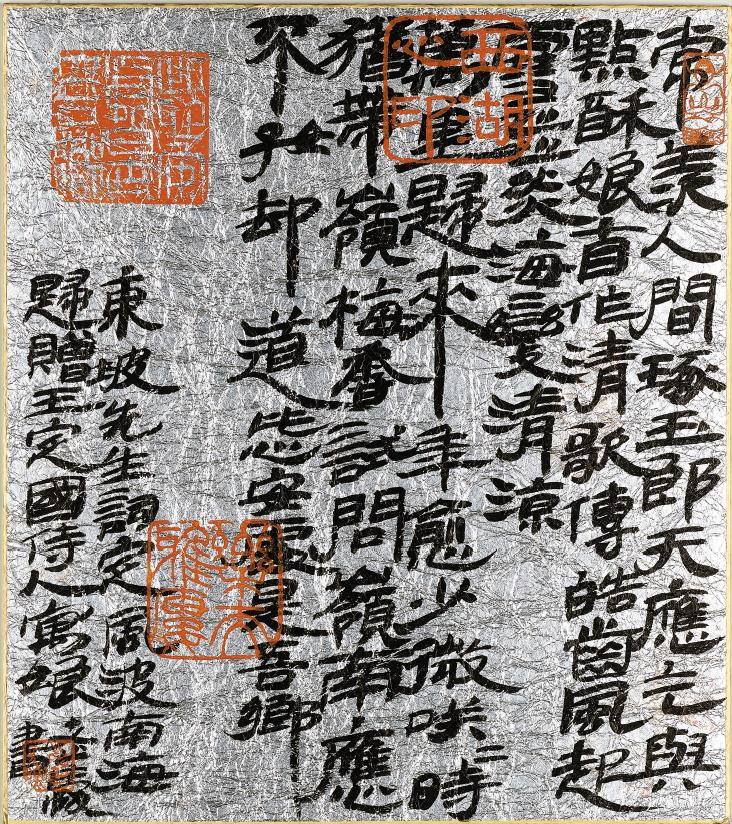 常羨人間琢玉郎天應乞與
點酥娘自作清歌傳皓齒風起
雪飛炎海變清涼
萬里歸來年愈少微咲〻時
猶帶嶺梅香試問嶺南應
不好却道此心安處是吾鄉
東坡先生詞定風波南海
歸贈王定國侍人寓娘
書
西湖